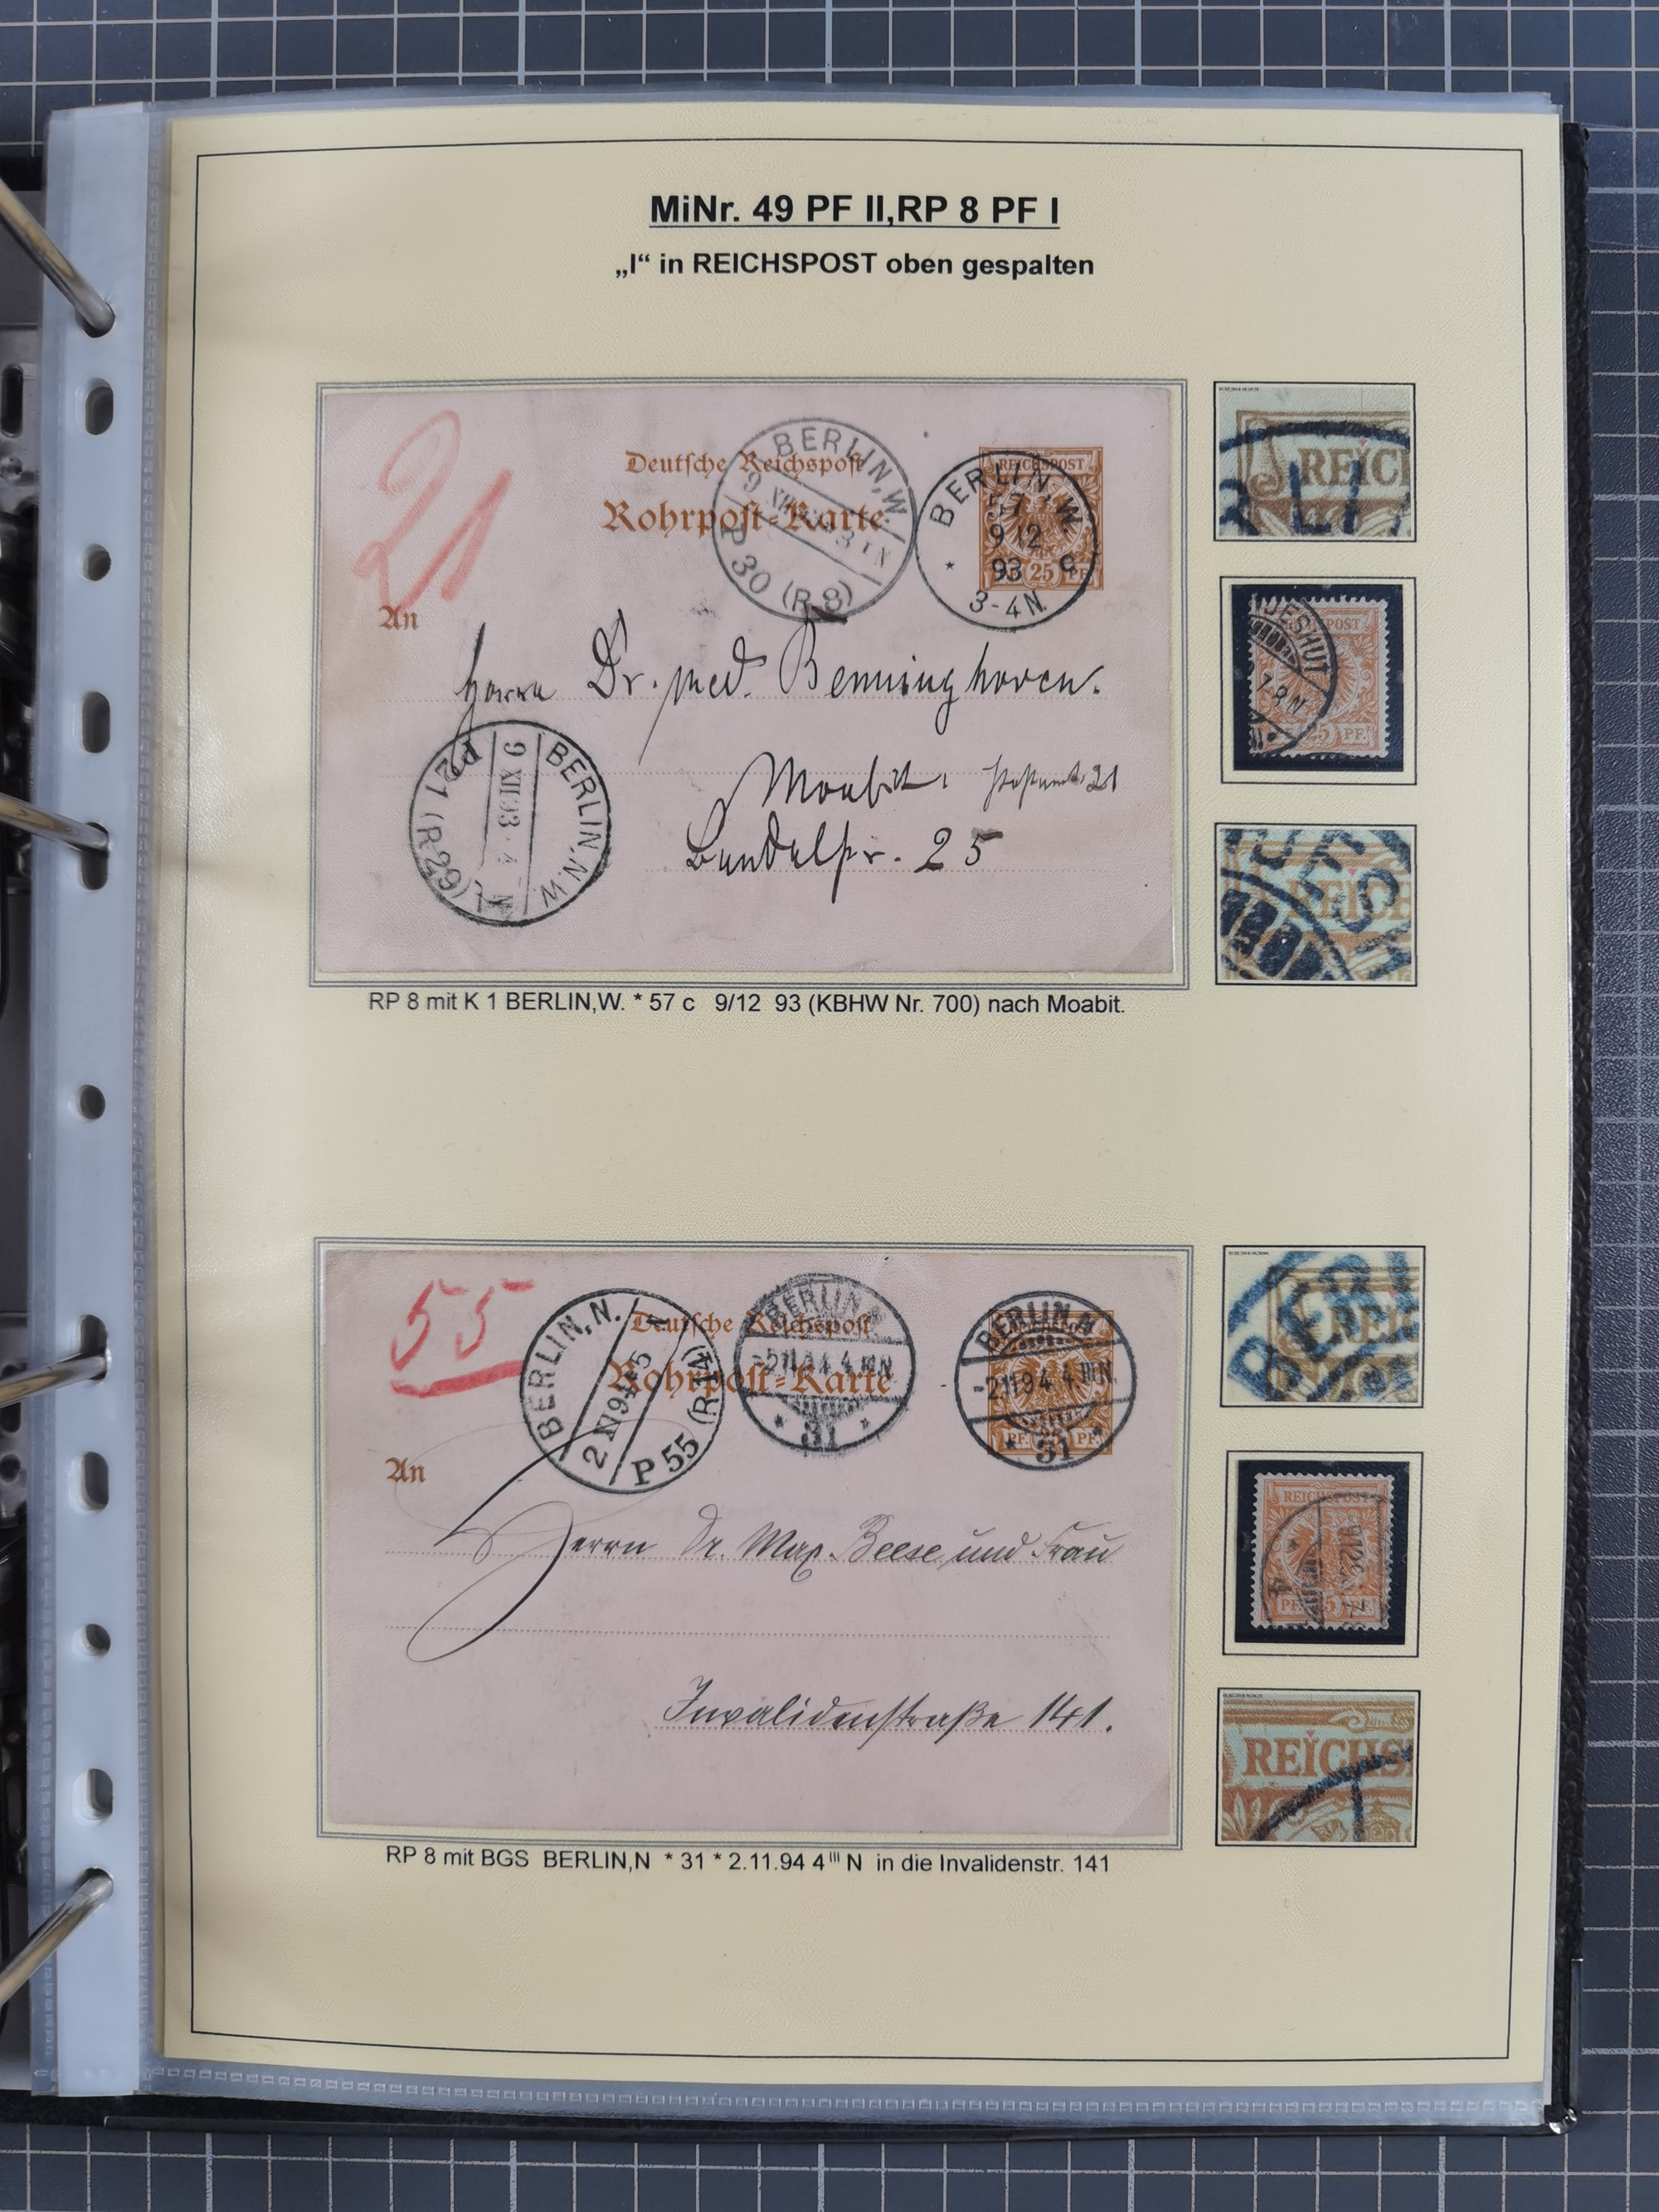 MiNr. 49 PF II,RP 8 PF I
„I“ in REICHSPOST oben gespalten
21
Deutsche Reichspost
Rohrpost-Karte
BERLIN,W.
9 XII
P 30 (R 8)
REICHSPOST
25 PF.
BERLIN W.
57
9 12
93 c
3-4N.
An
Herrn Dr. med. Benninghoven.
Moabit, Postamt 21
25
BERLIN,N.W.
9 XII 93
P 21 (R 29)
REICH
POST
25 PF.
7-8N
REICH
RP 8 mit K 1 BERLIN,W. * 57 c 9/12 93 (KBHW Nr. 700) nach Moabit.
55
Deutsche Reichspost
Rohrpost-Karte
BERLIN,N.
2 XI 94
P 55 (R 14)
BERLIN,N
-2.11.94.4 III N.
* 31 *
BERLIN,N
-2.11.94.4 III N.
* 31 *
PF. PF.
An
Herrn Dr. Max Beese und Frau
Invalidenstraße 141.
BERL
REICHSPOST
PF. 25 PF.
REICHS
RP 8 mit BGS BERLIN,N * 31 * 2.11.94 4 III N in die Invalidenstr. 141